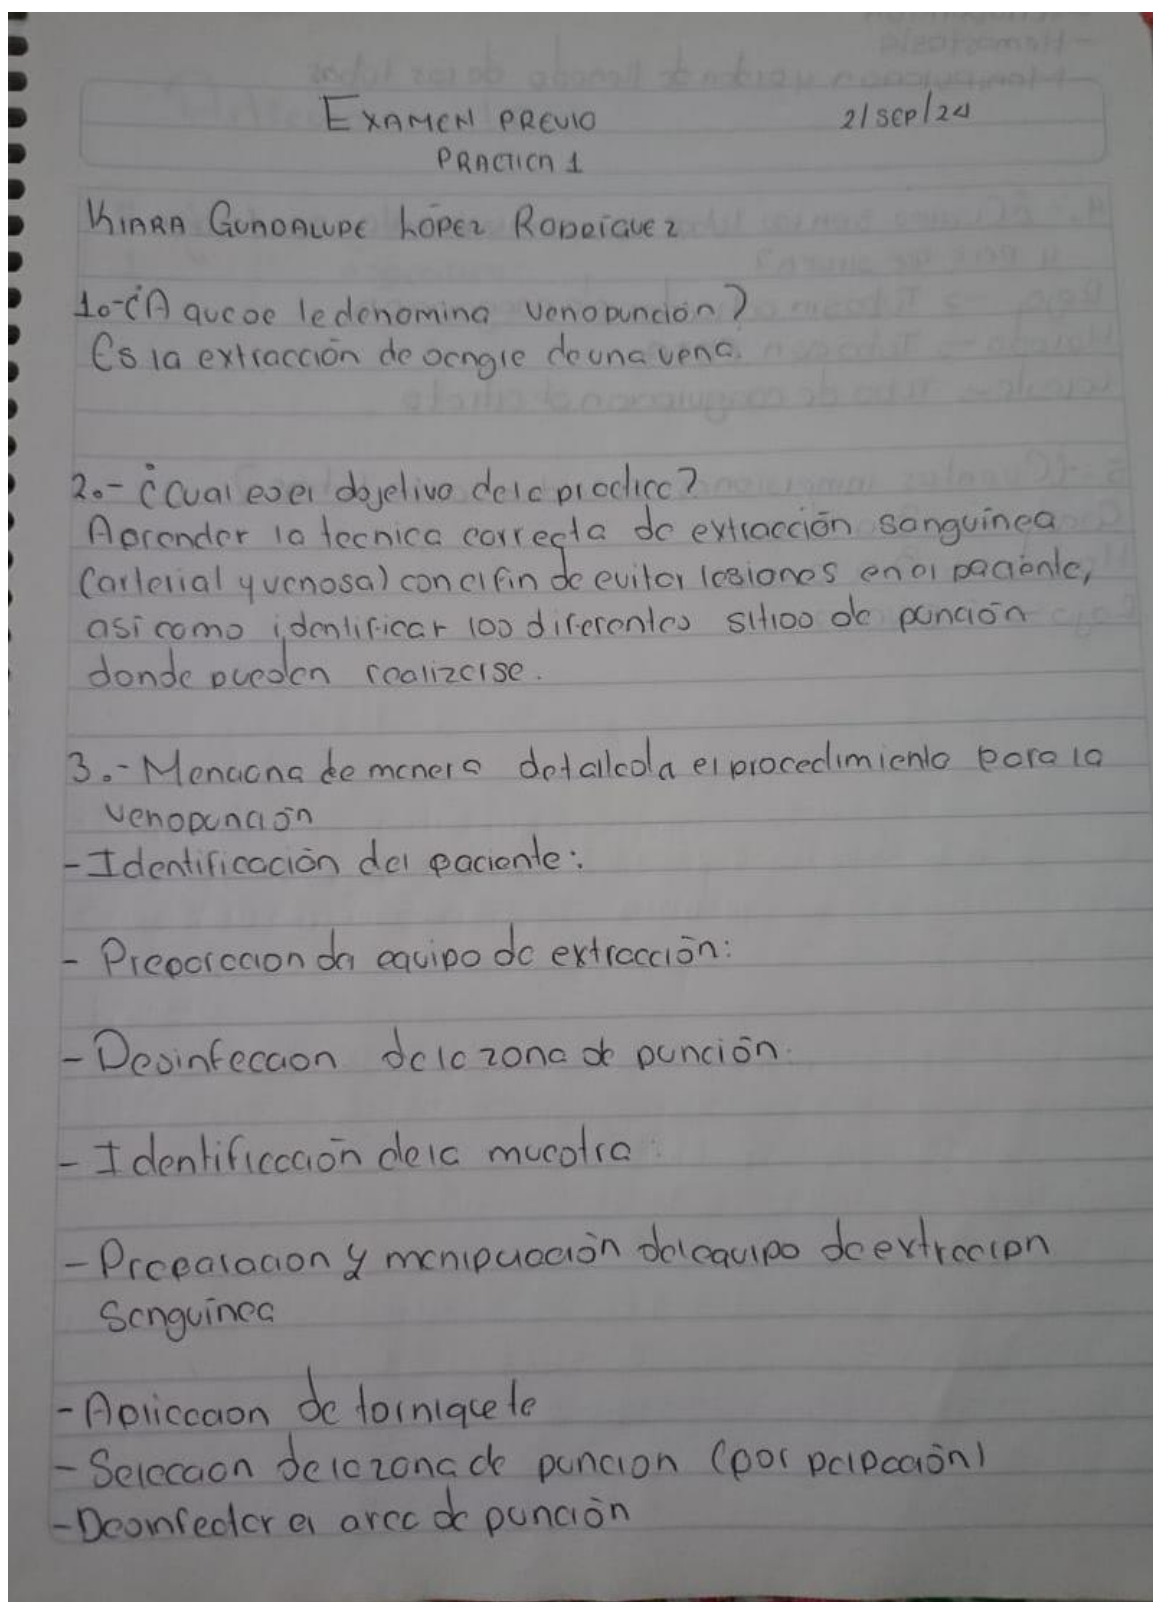 EXAMEN PREVIO 2/SEP/24
PRACTICA 1
KIARA GUADALUPE LÓPEZ RODRÍGUEZ
1.-¿A que se le denomina venopunción?
Es la extracción de sangre de una vena.
2.- ¿Cual es el objetivo de la practica?
Aprender la tecnica correcta de extracción sanguínea
(arterial y venosa) con el fin de evitar lesiones en el paciente,
así como identificar los diferentes sitios de punción
donde pueden realizarse.
3.- Menciona de manera detallada el procedimiento para la
venopunción
- Identificación del paciente:
- Preparacion del equipo de extracción:
- Desinfeccion de la zona de punción.
- Identificación de la muestra:
- Preparacion y manipulación del equipo de extraccion
sanguínea
- Aplicacion de torniquete
- Seleccion de la zona de puncion (por palpación)
- Desinfectar el area de punción